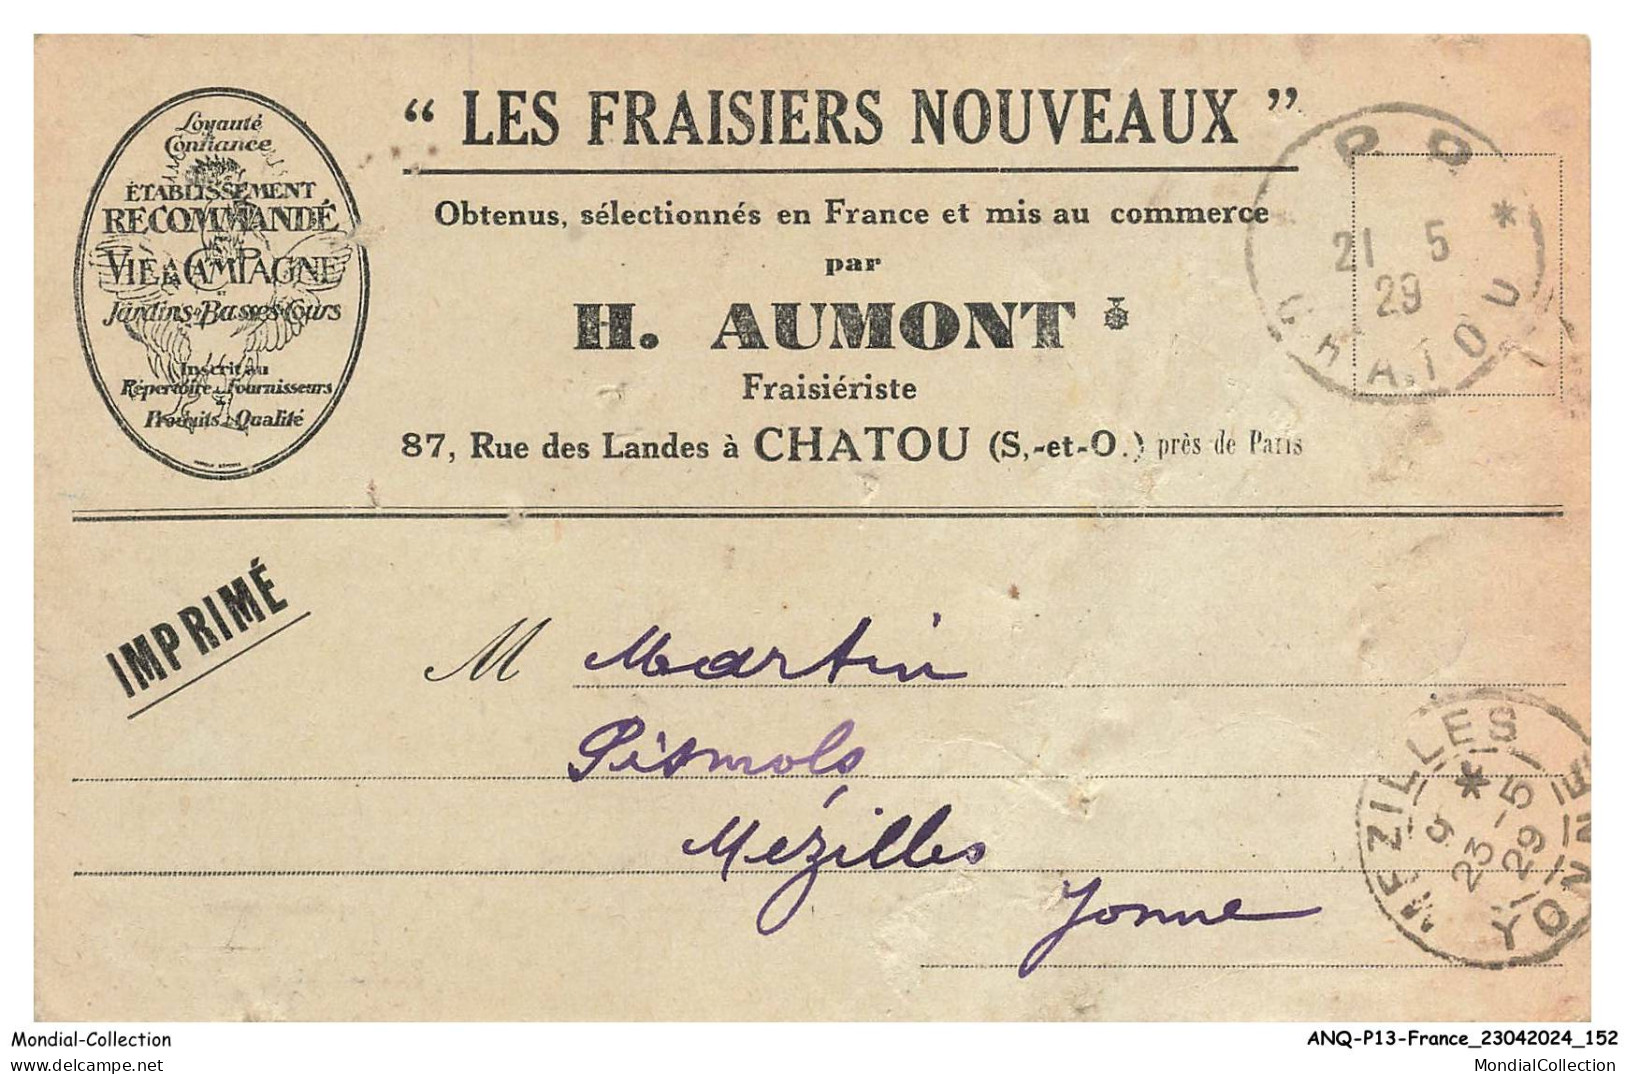 Loyauté
Confiance
ÉTABLISSEMENT
RECOMMANDÉ
VIE À CAMPAGNE
ET
Jardins & Basses-Cours
Inscrit au
Répertoire Fournisseurs
Produits Qualité
“ LES FRAISIERS NOUVEAUX ”
Obtenus, sélectionnés en France et mis au commerce
par
H. AUMONT
Fraisiériste
87, Rue des Landes à CHATOU (S,-et-O.) près de Paris
P P *
21 5
29
CHATOU
IMPRIMÉ
M Martin
Mézilles
Yonne
MEZILLES
*
9
23-5
29
YONNE
Mondial-Collection
ANQ-P13-France_23042024_152
https://www.delcampe.net
MondialCollection